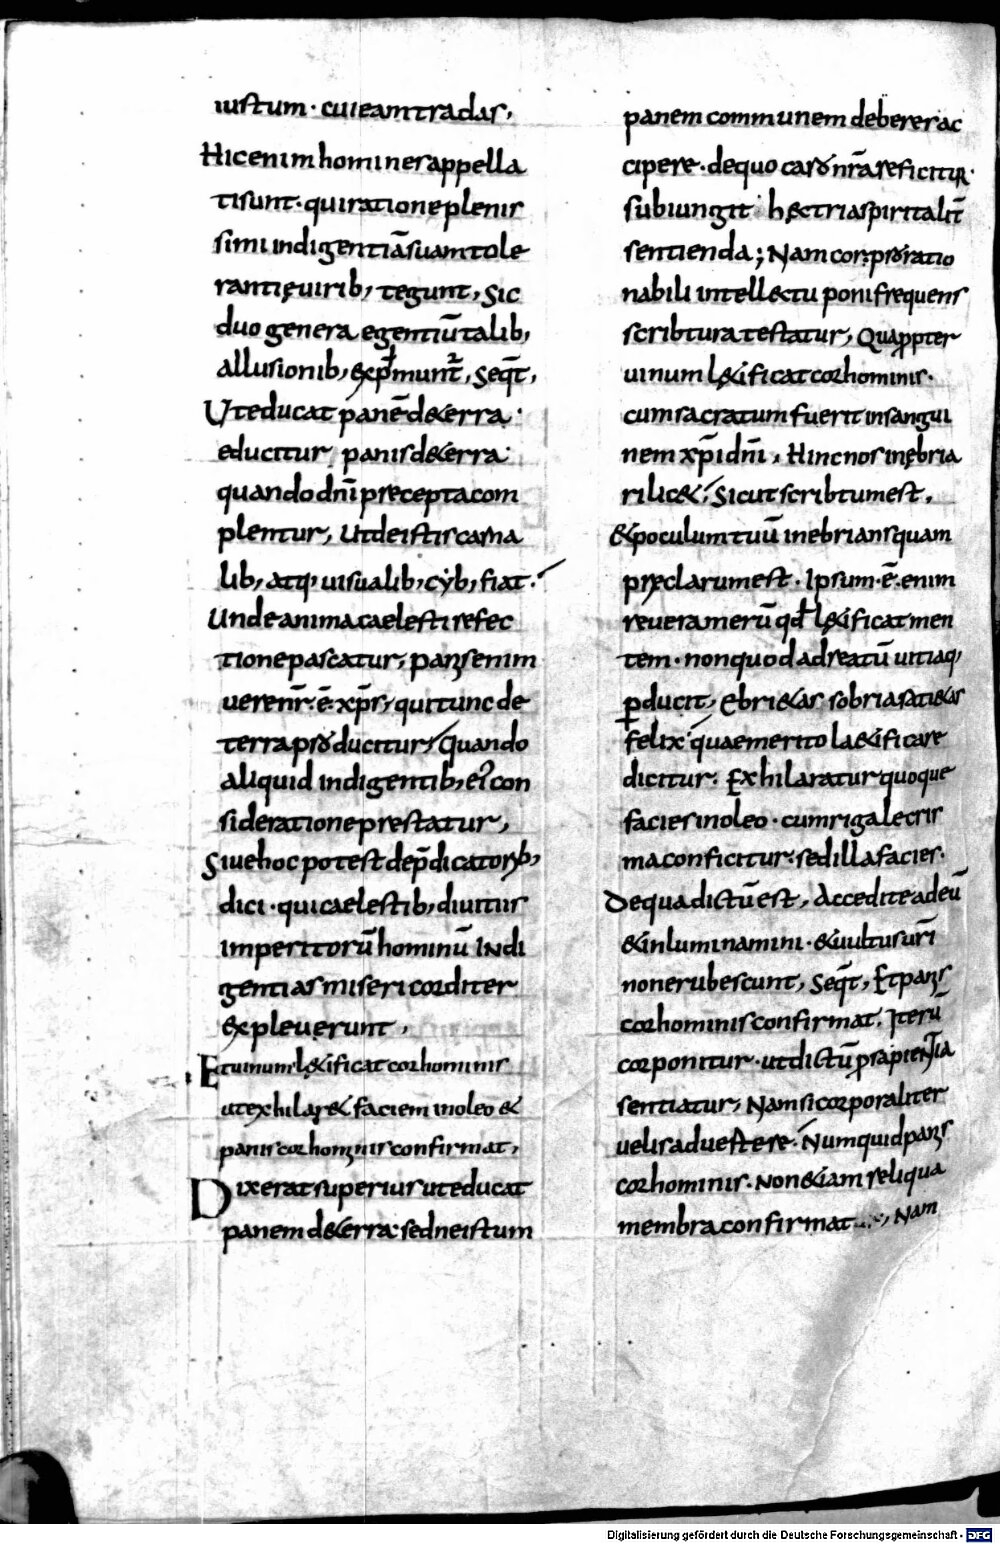 iustum · cui eam tradas,
Hic enim homines appella
ti sunt · qui ratione plenis
simi indigentiā suam tole
rantię virib; tegunt, Sic
duo genera egentiū talib;
allusionib; exp̄munt̄, Seqt̄,
Ut educat panē de terra ·
educitur panis de terra:
quando dn̄i precepta com
plentur, Ut de istis carna
lib; atq; visualib; cyb; fiat.
Unde anima caelesti refec
tione pascatur, panis enim
vere nr̄. ē. xp̄s, qui tunc de
terra producitur, Quando
aliquid indigentib; ei; con
sideratione prestatur,
Sive hoc potest de p̄dicatorib;
dici · qui caelestib; divitiis
imperitorū hominū indi
gentias misericorditer
expleverunt,
Et vinum lętificat cor hominis
ut exhilaret faciem in oleo &
panis cor hominis confirmat,
Dixerat superius ut educat
panem de terra: sed ne istum
panem communem deberes ac
cipere · de quo caro nr̄a reficitur ·
subiungit h& tria spiritalit̄
sentienda; Nam cor pro ratio
nabili intellectu poni frequens
scribtura testatur, Quapropter
vinum lętificat cor hominis ·
cum sacratum fuerit in sangui
nem xp̄i dn̄i, Hinc nos inebria
ri lic&, Sicut scribtum est,
& poculum tuū inebrians quam
pręclarum est · Ipsum · ē · enim
revera merū qd lętificat men
tem · non quod ad reatū vitiaq;
p̱ducit, Ebri&as sobria sati&as
felix quae merito laetificare
dicitur: Exhilaratur quoque
facies in oleo · cum rigale cris
ma conficitur: sed illa facies ·
De qua dictū est, Accedite ad eū
& inluminamini · & vultus urī
non erubescunt, Seqt̄, Et panis
cor hominis confirmat. Iterū
cor ponitur · ut dictū p̱ sapientia
sentiatur, Nam si corporaliter
velis advertere. Numquid panis
cor hominis. Non etiam reliqua
membra confirmat..., Nam
Digitalisierung gefördert durch die Deutsche Forschungsgemeinschaft - DFG